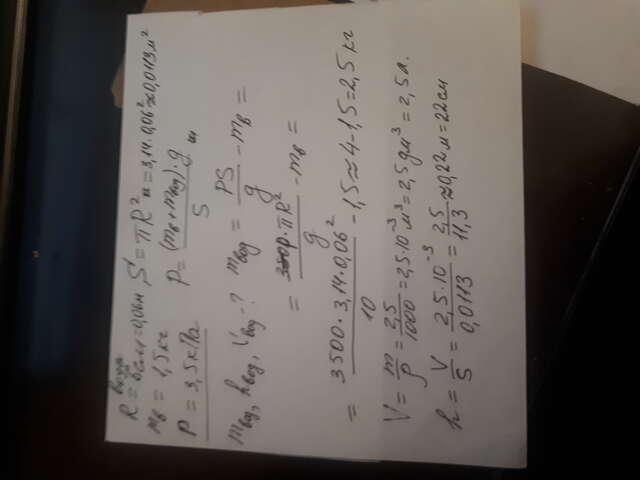 вода
R = 6см = 0,06м
S = πR² = 3,14·0,06² ≈ 0,0113 м²
mв = 1,5 кг
P = (mв + mвод)·g / S
P = 3,5 кПа
mвод, hвод, Vвод - ?
mвод = PS / g - mв =
= P·πR² / g - mв =
= 3500·3,14·0,06² / 10 - 1,5 ≈ 4 - 1,5 = 2,5 кг
V = m / ρ = 2,5 / 1000 = 2,5·10⁻³ м³ = 2,5 дм³ = 2,5 л.
h = V / S = 2,5·10⁻³ / 0,0113 = 2,5 / 11,3 ≈ 0,22 м = 22 см